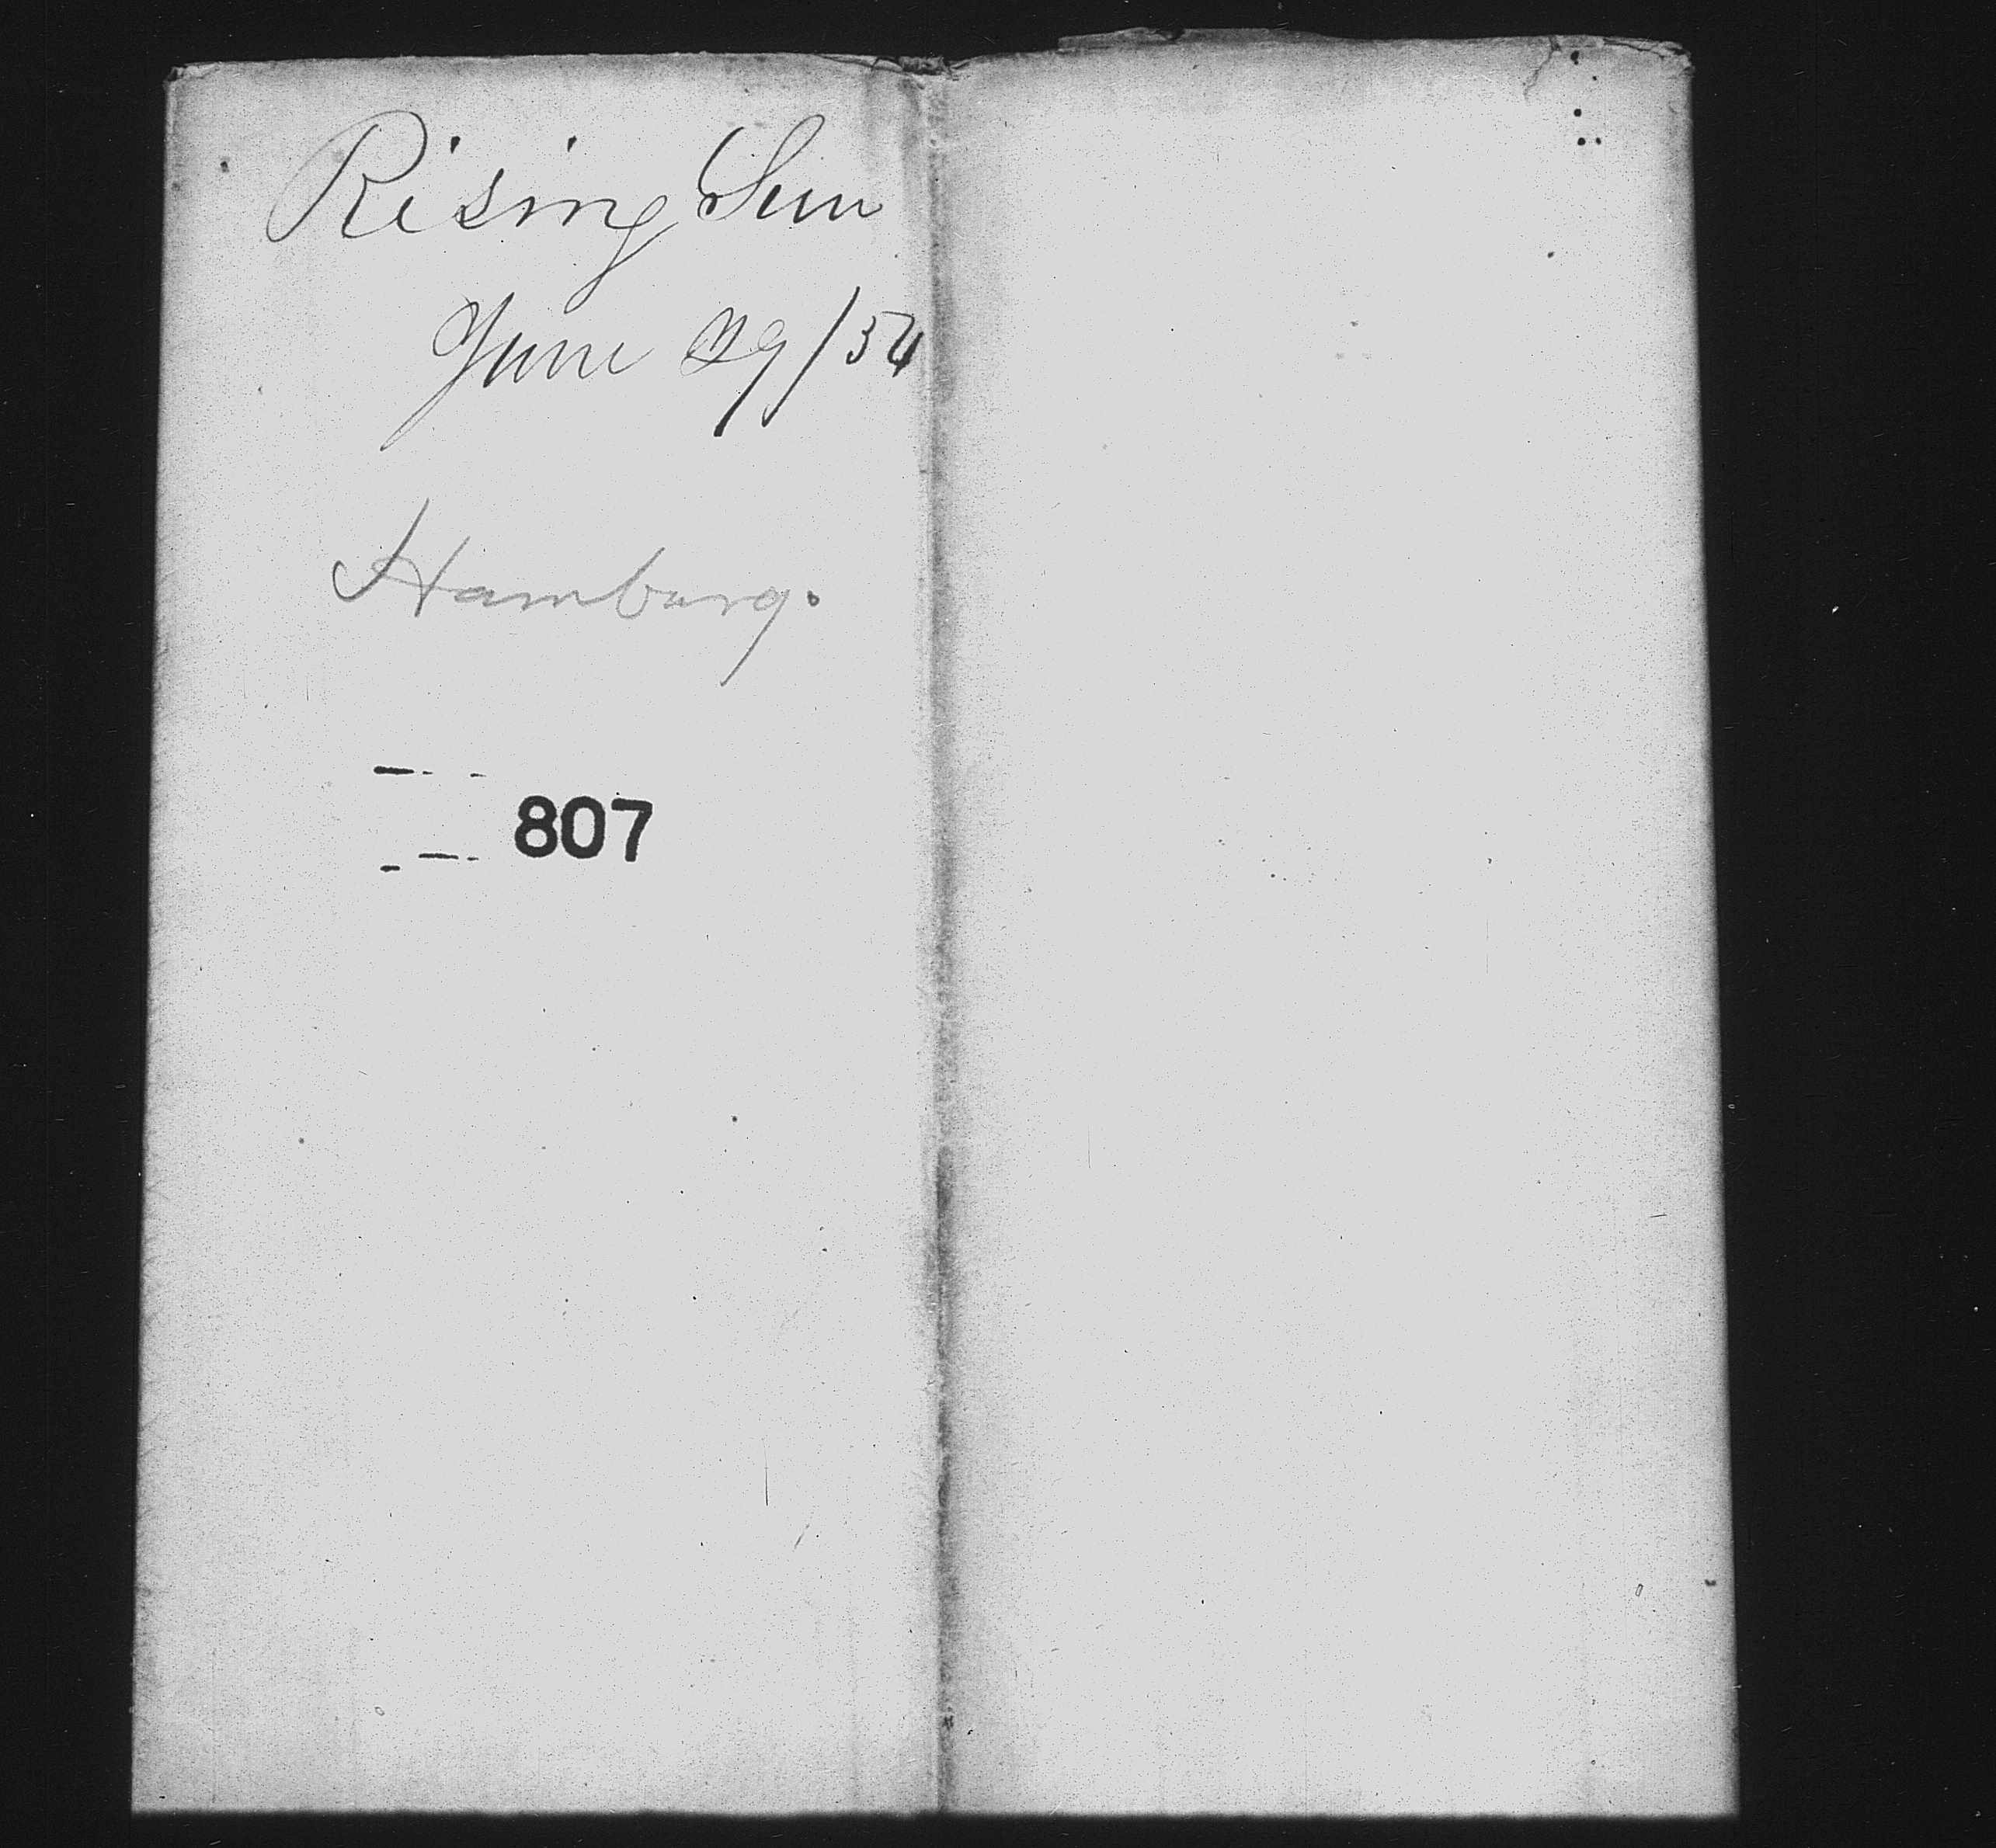 Rising Sun
June 29/54
Hamburg.
807